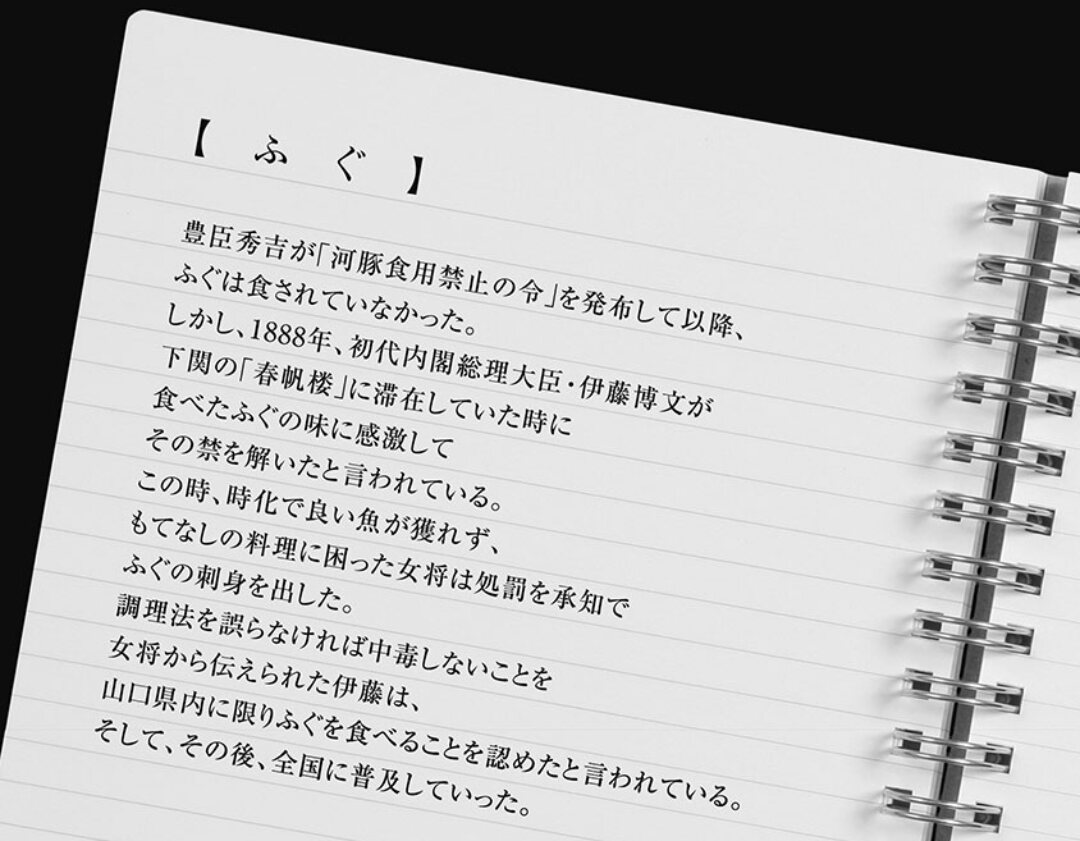 【 ふ ぐ 】
豊臣秀吉が「河豚食用禁止の令」を発布して以降、
ふぐは食されていなかった。
しかし、1888年、初代内閣総理大臣・伊藤博文が
下関の「春帆楼」に滞在していた時に
食べたふぐの味に感激して
その禁を解いたと言われている。
この時、時化で良い魚が獲れず、
もてなしの料理に困った女将は処罰を承知で
ふぐの刺身を出した。
調理法を誤らなければ中毒しないことを
女将から伝えられた伊藤は、
山口県内に限りふぐを食べることを認めたと言われている。
そして、その後、全国に普及していった。